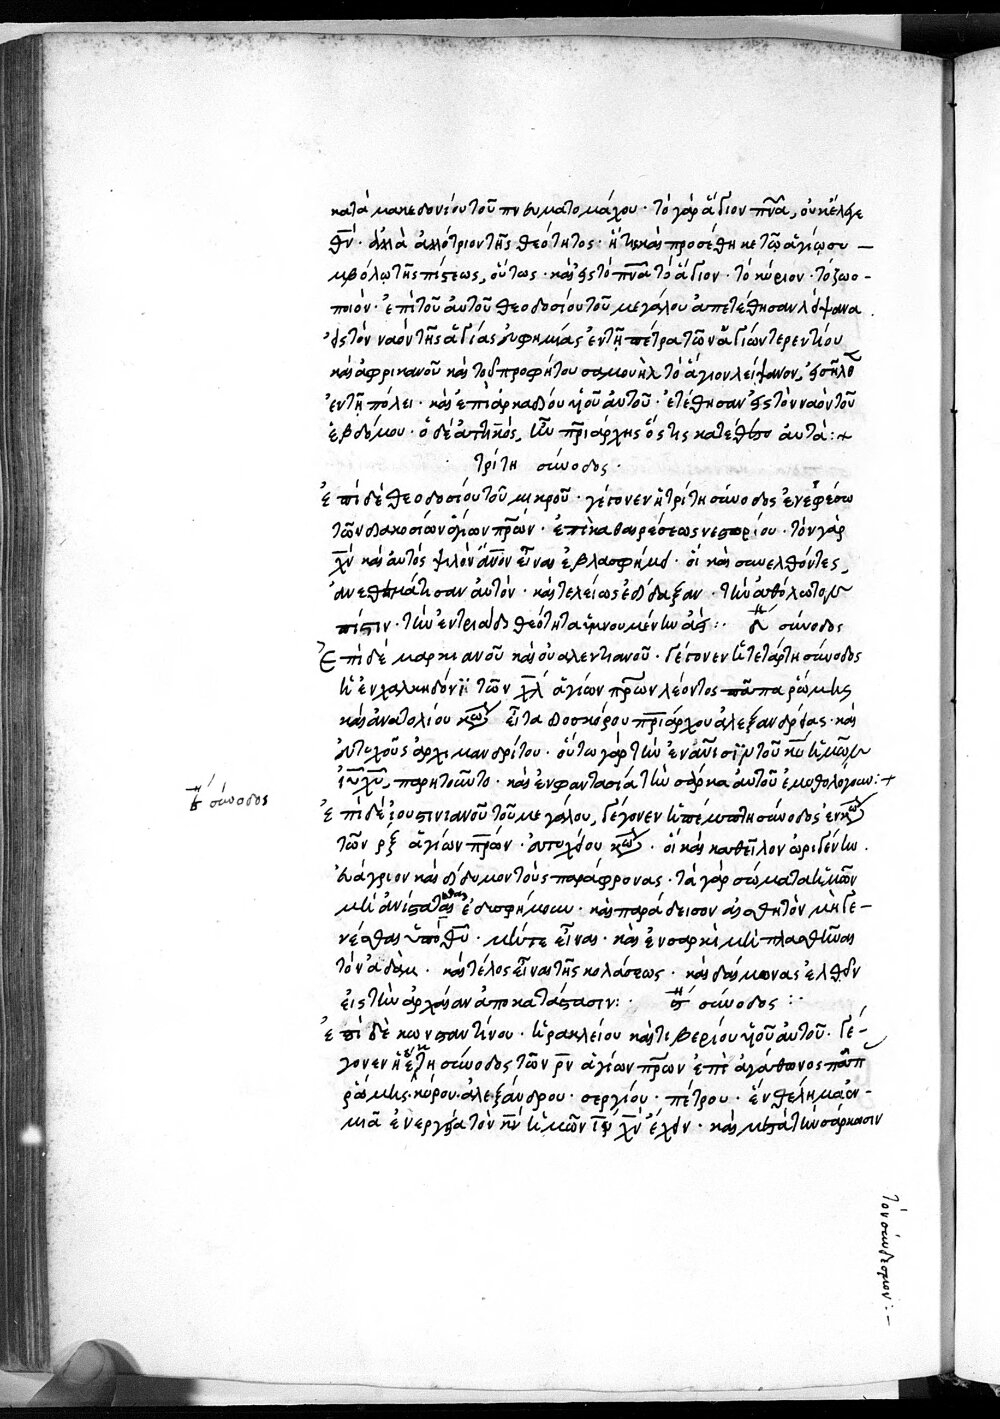 κατὰ μακεδονίου τοῦ πνευματομάχου · τὸ γὰρ ἅγιον πν̅α̅, οὐκ ἔλεγε
θν̅ · ἀλλὰ ἀλλότριον τῆς θεότητος · ἥτις καὶ προσέθηκε τῷ ἁγίῳ συ –
μβόλῳ τῆς πίστεως, οὕτως · καὶ εἰς τὸ πν̅α̅ τὸ ἅγιον · τὸ κύριον · τὸ ζωο –
ποιόν · ἐπὶ τοῦ αὐτοῦ θεοδοσίου τοῦ μεγάλου ἀπετέθησαν λείψανα
εἰς τὸν ναὸν τῆς ἁγίας εὐφημίας ἐν τῇ πέτρα τῶν ἁγίων τερεντίου
καὶ ἀφρικανοῦ καὶ τοῦ προφήτου σαμουὴλ τὸ ἅγιον λείψανον, εἰσῆλθ
ἐν τῇ πόλει · καὶ ἐπὶ ἀρκαδίου υἱοῦ αὐτοῦ · ἐτέθησαν εἰς τὸν ναὸν τοῦ
ἑβδόμου · ὁ δὲ ἀττικὸς, ἦν πρι̅άρχης ὅστις κατέθετο αὐτά :+
τρίτη σύνοδος ·
ἐπὶ δὲ θεοδοσίου τοῦ μικροῦ · γέγονεν ἡ τρίτη σύνοδος ἐν ἐφέσω
τῶν διακοσίων ἁγίων πρ̅ων · ἐπὶ καθαιρέσεως νεστορίου · τὸν γὰρ
χν̅ καὶ αὐτὸς ψιλὸν ἄν̅ον εἶναι ἐβλασφήμει · οἱ καὶ συνελθόντες,
ἀνεθεμάτισαν αὐτὸν · καὶ τελείως ἐδίδαξαν · τὴν ἀθόλωτον
πίστιν · τὴν ἐν τριάδι θεότητα ὑμνουμένην ἀεί :· δ̅ η σύνοδος
Ἐπὶ δὲ μαρκιανοῦ καὶ οὐαλεντιανοῦ · γέγονεν ἡ τετάρτη σύνοδος
ἡ ἐν χαλκηδόνϊ τῶν χ̅λ̅ ἁγίων πρ̅ων λέοντος πάπα ῥώμης
καὶ ἀνατολίου κων εἶτα διοσκόρου πρι̅άρχου ἀλεξανδρείας · καὶ
εὐτυχοῦς ἀρχιμανδρίτου · οὗτω γὰρ τὴν ἐναν̅ισϊν τοῦ κυ̅ ἡμῶν
ιυ̅ χυ̅, παρητοῦντο · καὶ ἐν φαντασία τὴν σάρκα αὐτοῦ ἐμυθολόγουν :+
ε̅ η σύνοδος
ἐπὶ δὲ ϊουστινιανοῦ τοῦ μεγάλου, γέγονεν ἡ πέμπτη σύνοδος ἐν κων
τῶν ρ̅ξ̅ ἁγίων πρ̅ων · εὐτυχίου κων · οἱ καὶ καθεῖλον ὠριγένην ·
εὐάγριον καὶ δίδυμον τοὺς παράφρονας · τὰ γὰρ σώματα ἡμῶν
μὴ ἀνίστασθαι ἐδυσφήμουν · καὶ παράδεισον αἰσθητὸν μὴ γε –
νέσθαι ὑπὸ θυ̅ · μήτε εἶναι · καὶ ἐν σαρκὶ μὴ πλασθῆναι
τὸν ἀδὰμ · καὶ τέλος εἶναι τῆς κολάσεως · καὶ δαίμονας ἐλθεῖν
εἰς τὴν ἀρχαίαν ἀποκατάστασιν : · ϛ̅ η σύνοδος :·
ἐπὶ δὲ κωνσταντίνου · ἡρακλείου καὶ τιβερίου υἱοῦ αὐτοῦ · γέ –
γονεν ἡ ἕκτη σύνοδος τῶν ρν̅ ἁγίων πρ̅ων ἐπὶ ἀγάθωνος πάπ
ῥώμης · κύρου ἀλεξάνδρου · σεργίου · πέτρου · ἓν θέλημα ἐν –
μιᾶ ἐνεργεία τὸν κν̅ ἡμῶν ιν̅ χν̅ ἔχειν · καὶ μετὰ τὴν σάρκασιν
τὸν σύνδεσμον :–